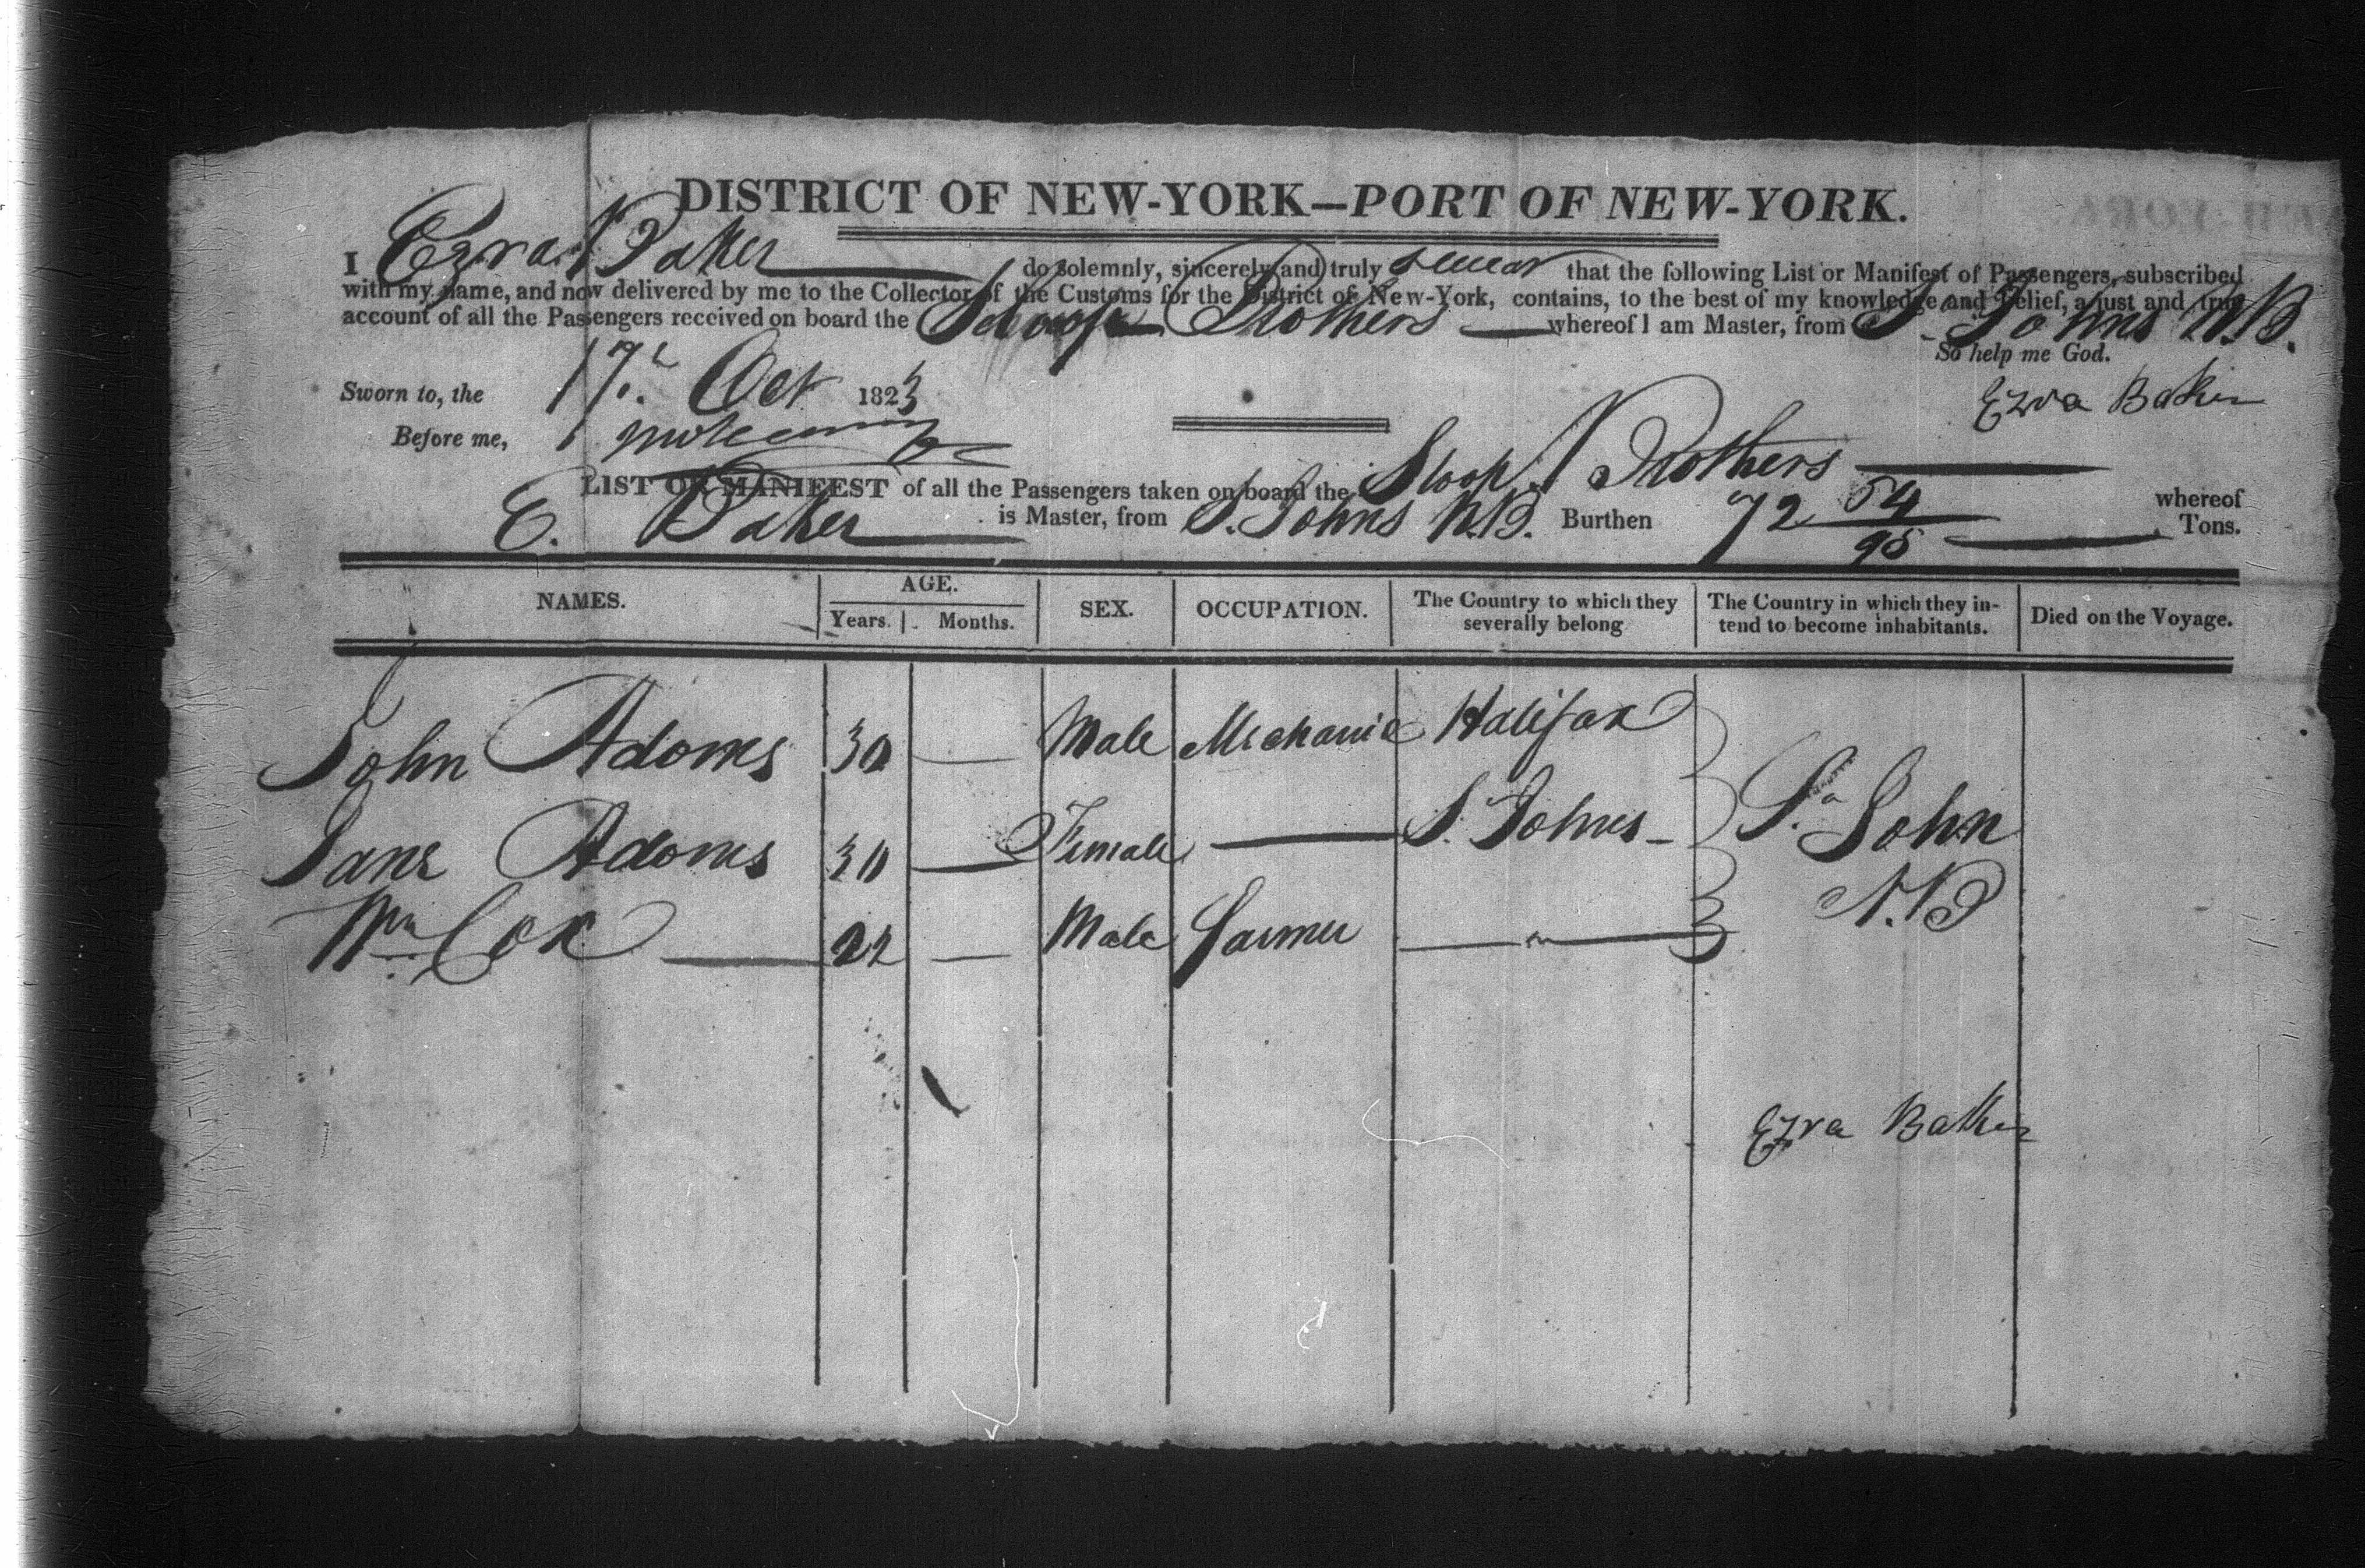 DISTRICT OF NEW-YORK—PORT OF NEW-YORK.
I Ezra Baker do solemnly, sincerely and truly swear that the following List or Manifest of Passengers, subscribed
with my name, and now delivered by me to the Collector of the Customs for the District of New-York, contains, to the best of my knowledge and belief, a just and true
account of all the Passengers received on board the Sloop Brothers whereof I am Master, from S. Johns N.B.
So help me God.
Sworn to, the 17. Oct 1823 Ezra Baker
Before me,
LIST OR MANIFEST of all the Passengers taken on board the Sloop Brothers whereof
E. Baker is Master, from S. Johns N.B. Burthen 72 54/95 Tons.
NAMES. AGE. Years. Months. SEX. OCCUPATION. The Country to which they severally belong The Country in which they intend to become inhabitants. Died on the Voyage.
John Adams 30 — Male Mechanic Halifax
Jane Adams 30 — Female — S. Johns - S. John
Wm Cox — 22 — Male Farmer — " — N.B
Ezra Baker